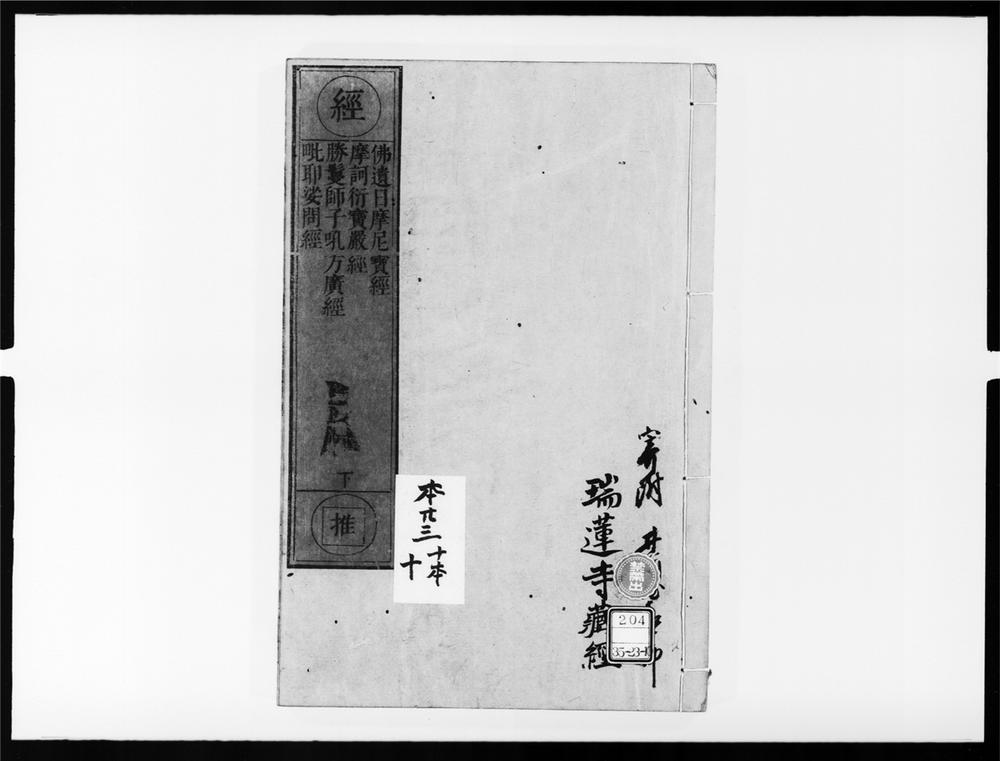 經
佛遺日摩尼寶經
摩訶衍寶嚴經
勝鬘師子吼方廣經
毗耶娑問經
下
推
本
十本
十
寄附
瑞蓮寺藏經
禁帶出
204
35-23-1